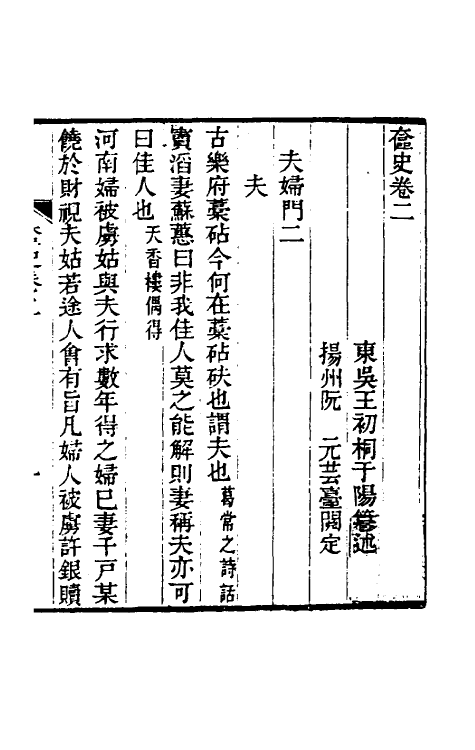 奩史卷二
東吳王初桐于陽纂述
揚州阮　元芸臺閱定
夫婦門二
夫
古樂府藁砧今何在藁砧砆也謂夫也葛常之詩話
竇滔妻蘇蕙曰非我佳人莫之能解則妻稱夫亦可
曰佳人也天香樓偶得
河南婦被虜姑與夫行求數年得之婦已妻千戸某
饒於財視夫姑若途人會有旨凡婦人被虜許銀贖